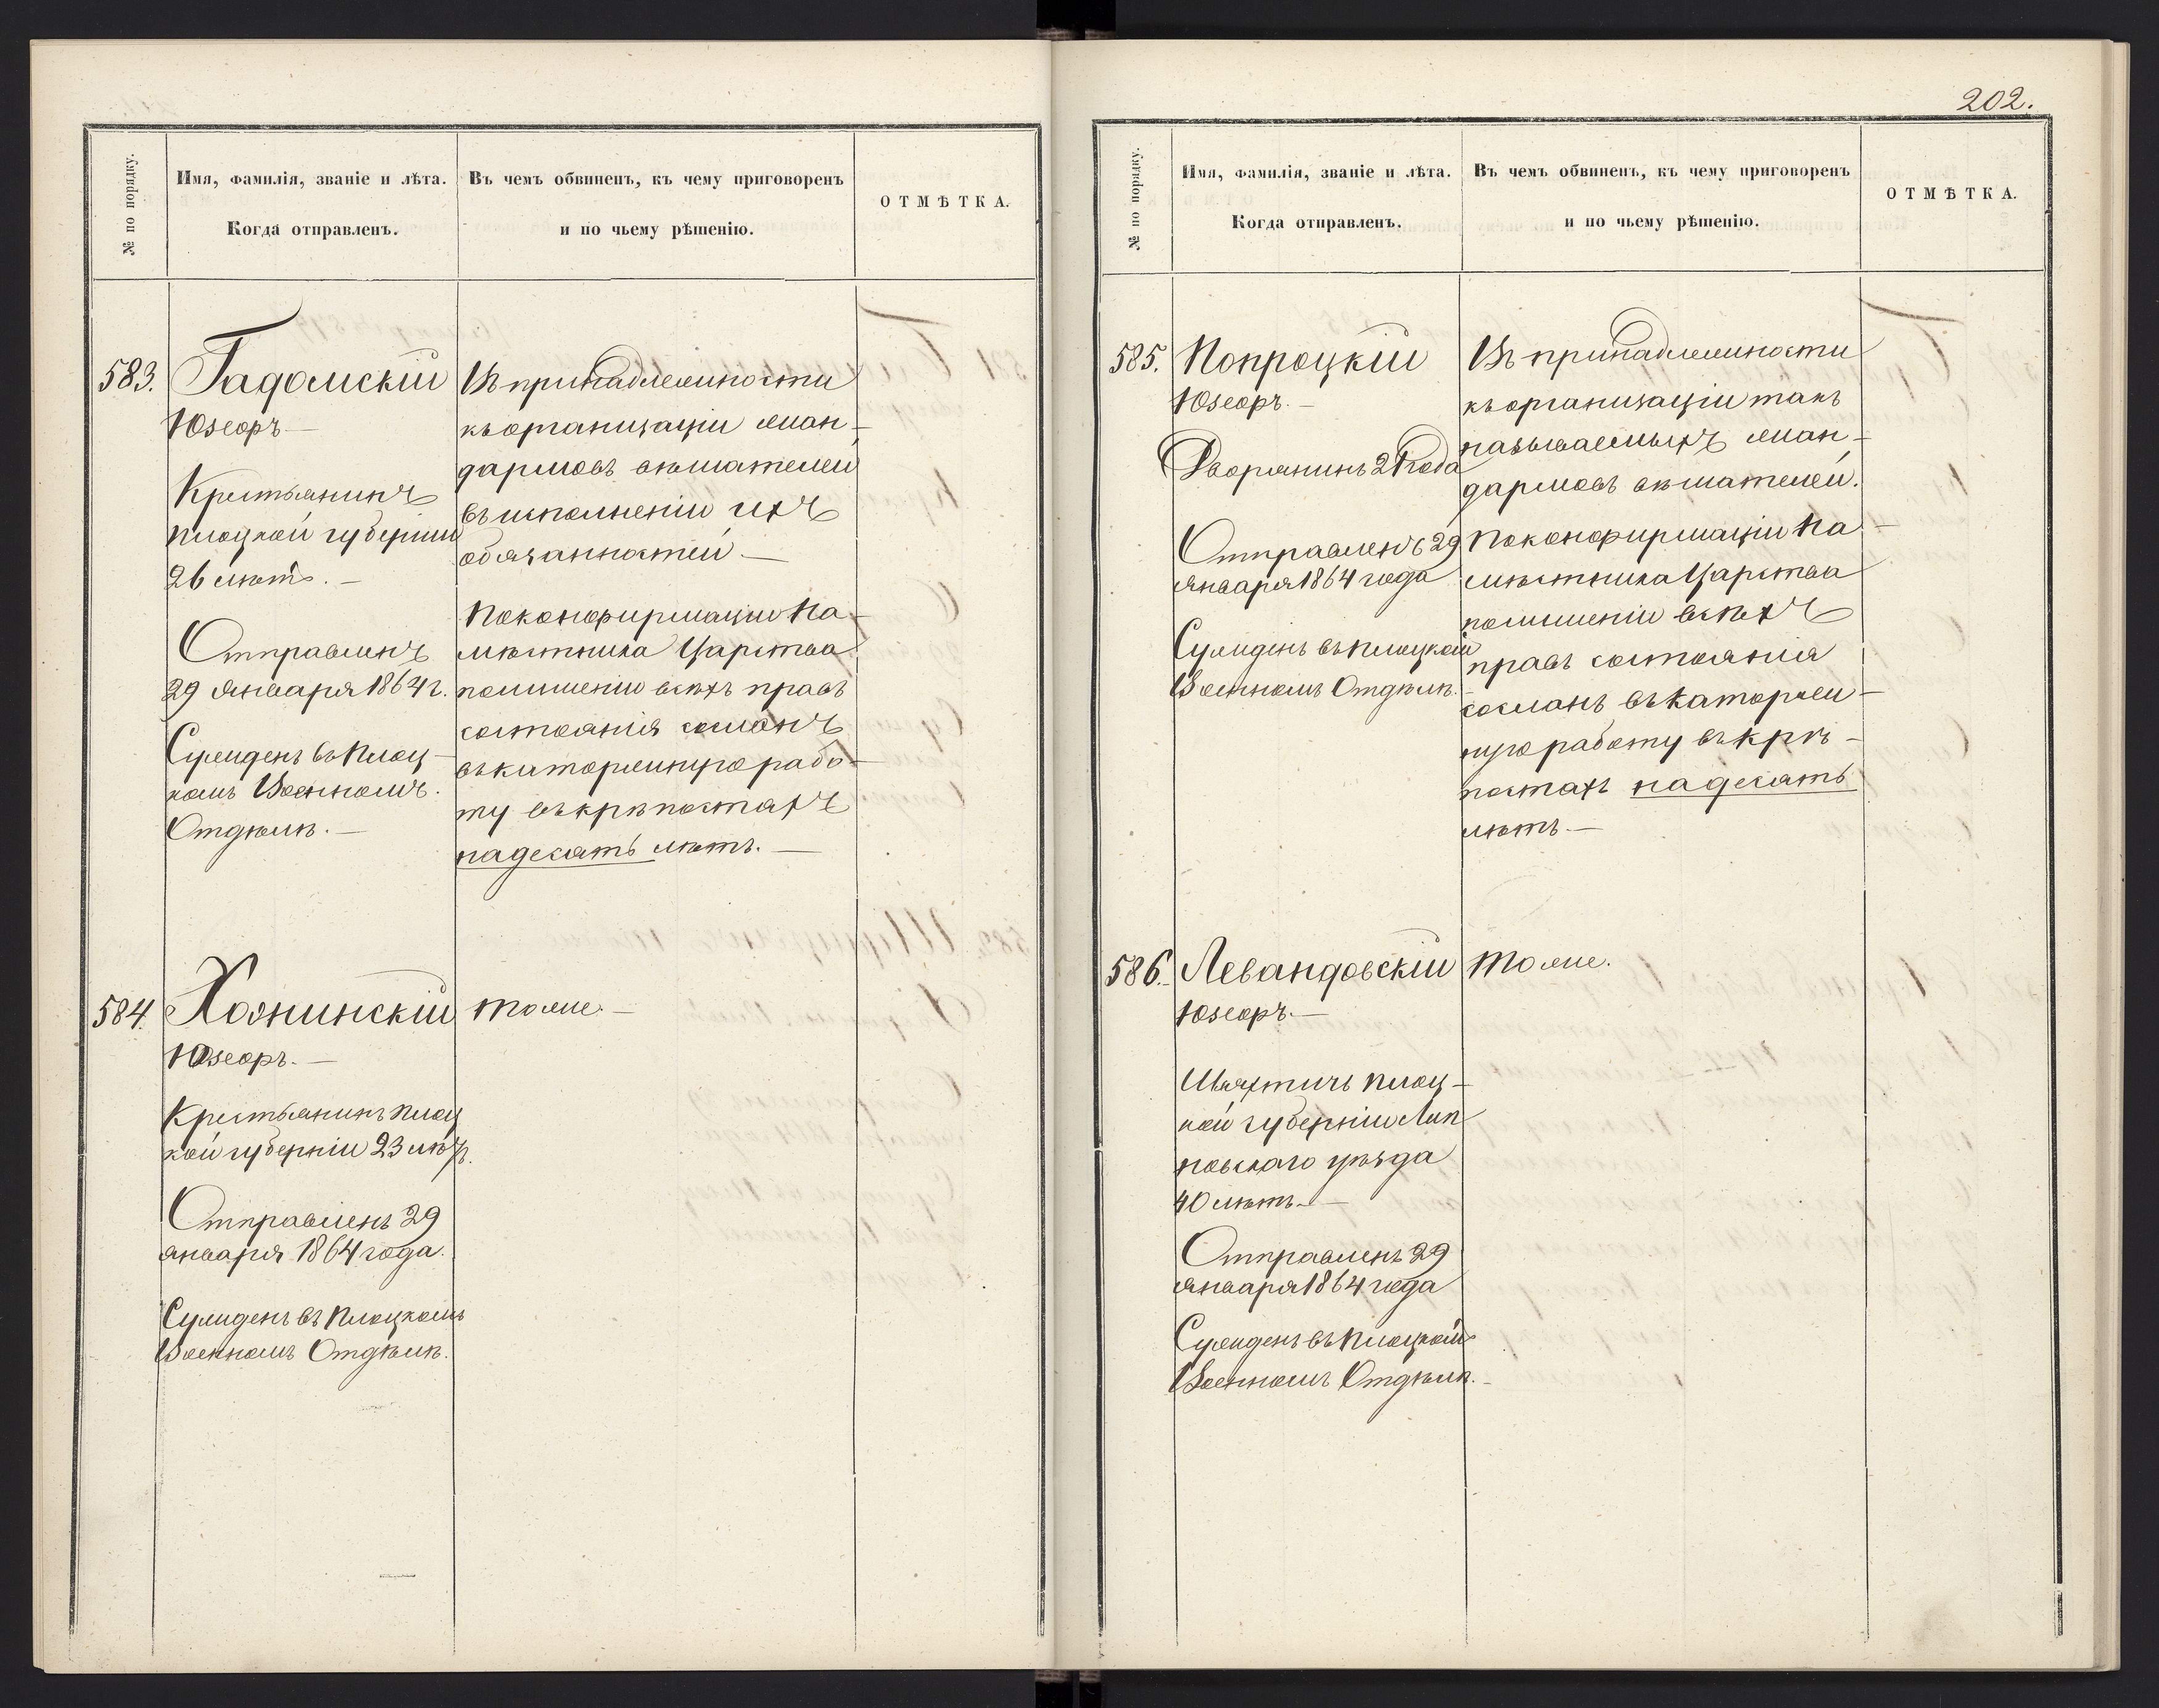 № по порядку.
Имя, фамилія, званіе и лѣта.
Когда отправленъ.
Въ чемъ обвиненъ, къ чему приговоренъ
и по чьему рѣшенію.
ОТМѢТКА.
583.
Гадомскій
Юзефъ —
Крестьянинъ
Плоцкой губерніи
26 лѣтъ. —
Отправленъ
29 Января 1864 г.
Сужденъ въ Плоц-
комъ Военномъ
Отдѣлѣ. —
Въ принадлежности
къ организаціи жан-
дармовъ вѣшателей
въ исполненіи ихъ
обязанностей. —
По конфирмаціи На-
мѣстника Царства
по лишеніи всѣхъ правъ
состоянія сосланъ
въ каторжную рабо-
ту въ крѣпостахъ
на десять лѣтъ. —
584.
Хойнинскій
Юзефъ. —
Крестьянинъ Плоц
кой губерніи 23 лѣтъ.
Отправленъ 29
января 1864 года.
Сужденъ въ Плоцкомъ
Военномъ Отдѣлѣ.
Тоже. —
202.
№ по порядку.
Имя, фамилія, званіе и лѣта.
Когда отправленъ.
Въ чемъ обвиненъ, къ чему приговоренъ
и по чьему рѣшенію.
ОТМѢТКА.
585.
Попроцкій
Юзефъ. —
Дворянинъ 21 года
Отправленъ 29
января 1864 года
Сужденъ въ Плоцкомъ
Военномъ Отдѣлѣ.
Въ принадлежности
къ организаціи такъ
называемыхъ жан-
дармовъ вѣшателей.
По конфирмаціи На-
мѣстника Царства
по лишеніи всѣхъ
правъ состоянія
сосланъ въ каторжн-
ую работу въ крѣ-
постахъ на десять
лѣтъ. —
586.
Левандовскій
Юзефъ. —
Шляхтичъ Плоц-
кой губерніи Лип
новскаго уѣзда
40 лѣтъ. —
Отправленъ 29
января 1864 года
Сужденъ въ Плоцкомъ
Военномъ Отдѣлѣ.
Тоже.